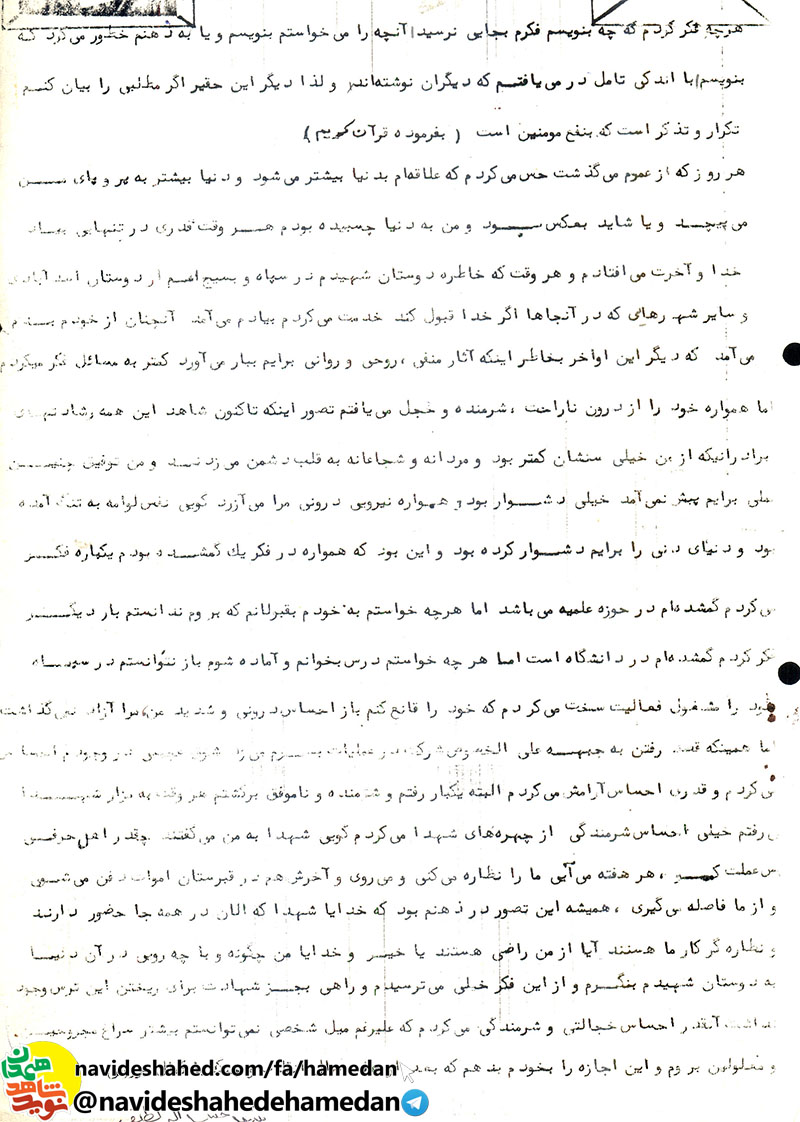 هرچه فکر کردم که چه بنویسم فکرم بجایی نرسید/آنچه را می خواستم بنویسم و یا به ذهنم خطور می کرد که
بنویسم/با اندکی تامل در می یافتم که دیگران نوشته‌اند، و لذا دیگر این حقیر اگر مطلبی را بیان کنم
تکرار و تذکر است که بنفع مومنین است ( بفرموده قرآن کریم )
هر روز که از عمرم می گذشت حس می کردم که علاقه‌ام بدنیا بیشتر می شود و دنیا بیشتر به پر و پای من
می پیچد و یا شاید بعکس بود و من به دنیا چسبیده بودم هر وقت قدری در تنهایی بیاد
خدا و آخرت می افتادم و هر وقت که خاطره دوستان شهیدم در سپاه و بسیج اعم از دوستان اسدآبادی
و سایر شهرهایی که در آنجاها اگر خدا قبول کند خدمت می کردم بیادم می آمد آنچنان از خودم بدم
می آمد که دیگر این اواخر بخاطر اینکه آثار منفی ، روحی و روانی برایم ببار می آورد کمتر به مسائل فکر میکردم
اما همواره خود را از درون ناراحت ، شرمنده و خجل می یافتم تصور اینکه تاکنون شاهد این همه رشادتهای
برادرانیکه از من خیلی سنشان کمتر بود و مردانه و شجاعانه به قلب دشمن می زدند و من توفیق چنین
عملی برایم پیش نمی آمد خیلی دشوار بود و همواره نیرویی درونی مرا می آزرد گویی نفس لوامه به تنگ آمده
بود و دنیای دنی را برایم دشوار کرده بود و این بود که همواره در فکر یك گمشده بودم یکباره فکر
می کردم گمشده‌ام در حوزه علمیه می باشد اما هرچه خواستم به خودم بقبولانم که بروم ندانستم بار دیگر
فکر کردم گمشده‌ام در دانشگاه است اما هر چه خواستم درس بخوانم و آماده شوم باز نتوانستم در سپاه
خود را مشغول فعالیت سخت می کردم که خود را قانع کنم باز احساس درونی و شدید من، مرا آزاد نمی گذاشت
اما همینکه قصد رفتن به جبهه علی الخصوص شرکت در عملیات بسرم می زد شوق عجیبی در وجودم احساس
می کردم و قدری احساس آرامش می کردم البته یکبار رفتم و شرمنده و ناموفق برگشتم هر وقت به مزار شهدا
می رفتم خیلی احساس شرمندگی از چهره‌های شهدا می کردم گویی شهدا به من می گفتند چقدر اهل حرفی
پس عملت کو ، هر هفته می آیی ما را نظاره می کنی و می روی و آخرش هم در قبرستان اموات دفن می شوی
و از ما فاصله می گیری ، همیشه این تصور در ذهنم بود که خدایا شهدا که الان در همه جا حضور دارند
و نظاره گر کار ما هستند آیا از من راضی هستند یا خیر و خدایا من چگونه و با چه رویی در آن دنیا
به دوستان شهیدم بنگرم و از این فکر خیلی می ترسیدم و راهی بجز شهادت برای ریختن این ترس وجود
نداشت آنقدر احساس خجالتی و شرمندگی می کردم که علیرغم میل شخصی نمی توانستم بیشتر سراغ مجروحین
و معلولین بروم و این اجازه را بخودم بدهم که بعد از
navideshahed.com/fa/hamedan
@navideshahedehamedan
نوید شاهد همدان